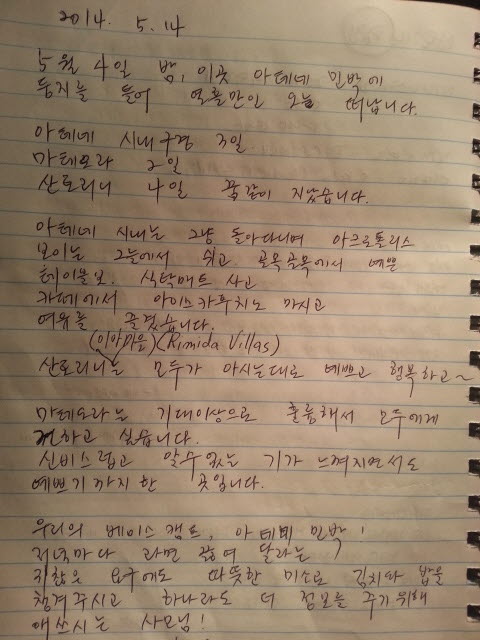 2014. 5.14
5월 4일 밤, 이곳 아테네 민박에
둥지를 틀어 열흘만인 오늘 떠납니다.
아테네 시내구경 3일.
마테오라 2일
산토리니 4일 꿈같이 지났습니다.
아테네 시내는 그냥 돌아다니며 아크로폴리스
보이는 그늘에서 쉬고, 골목골목에서 예쁜
테이블보. 식탁매트 사고
카페에서 아이스카푸치노 마시고
여유를 즐겼습니다.
(이아마을) (Rimida Villas)
산토리니는 모두가 아시는대로 예쁘고 행복하고~
마테오라는 기대이상으로 훌륭해서 모두에게
권하고 싶습니다.
신비스럽고 알수없는 기가 느껴지면서도
예쁘기까지 한 곳입니다.
우리의 베이스캠프, 아테네 민박!
저녁마다 라면 끓여 달라는
귀찮은 요구에도 따뜻한 미소로 김치와 밥을
챙겨주시고 하나라도 더 정보를 주기위해
애쓰시는 사모님!